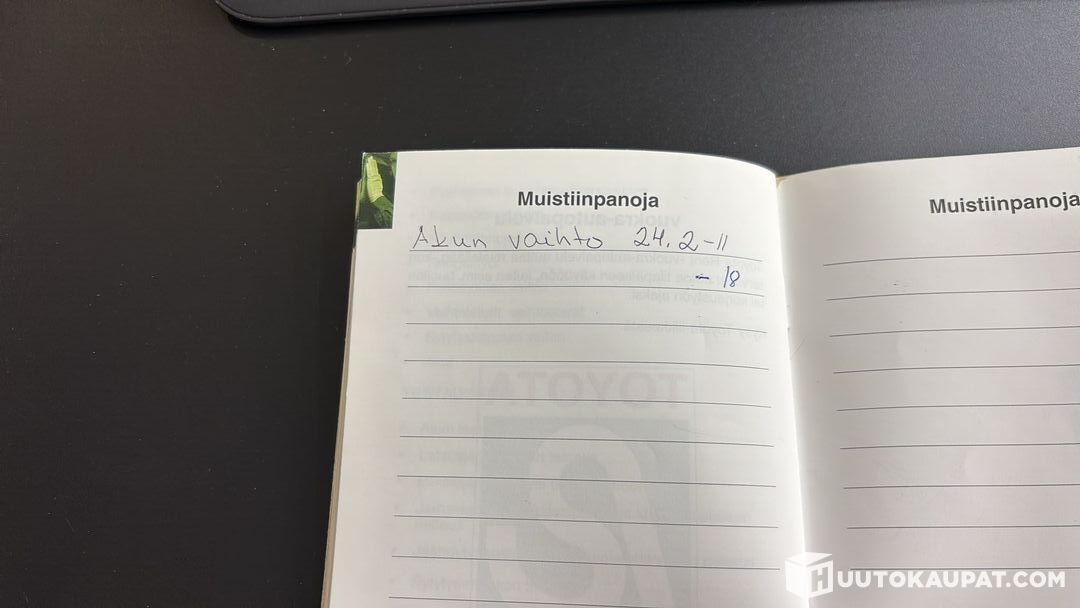 Muistiinpanoja
Akun vaihto 24.2-11
- 18
Muistiinpanoja
TOYOTA
HUUTOKAUPAT.COM